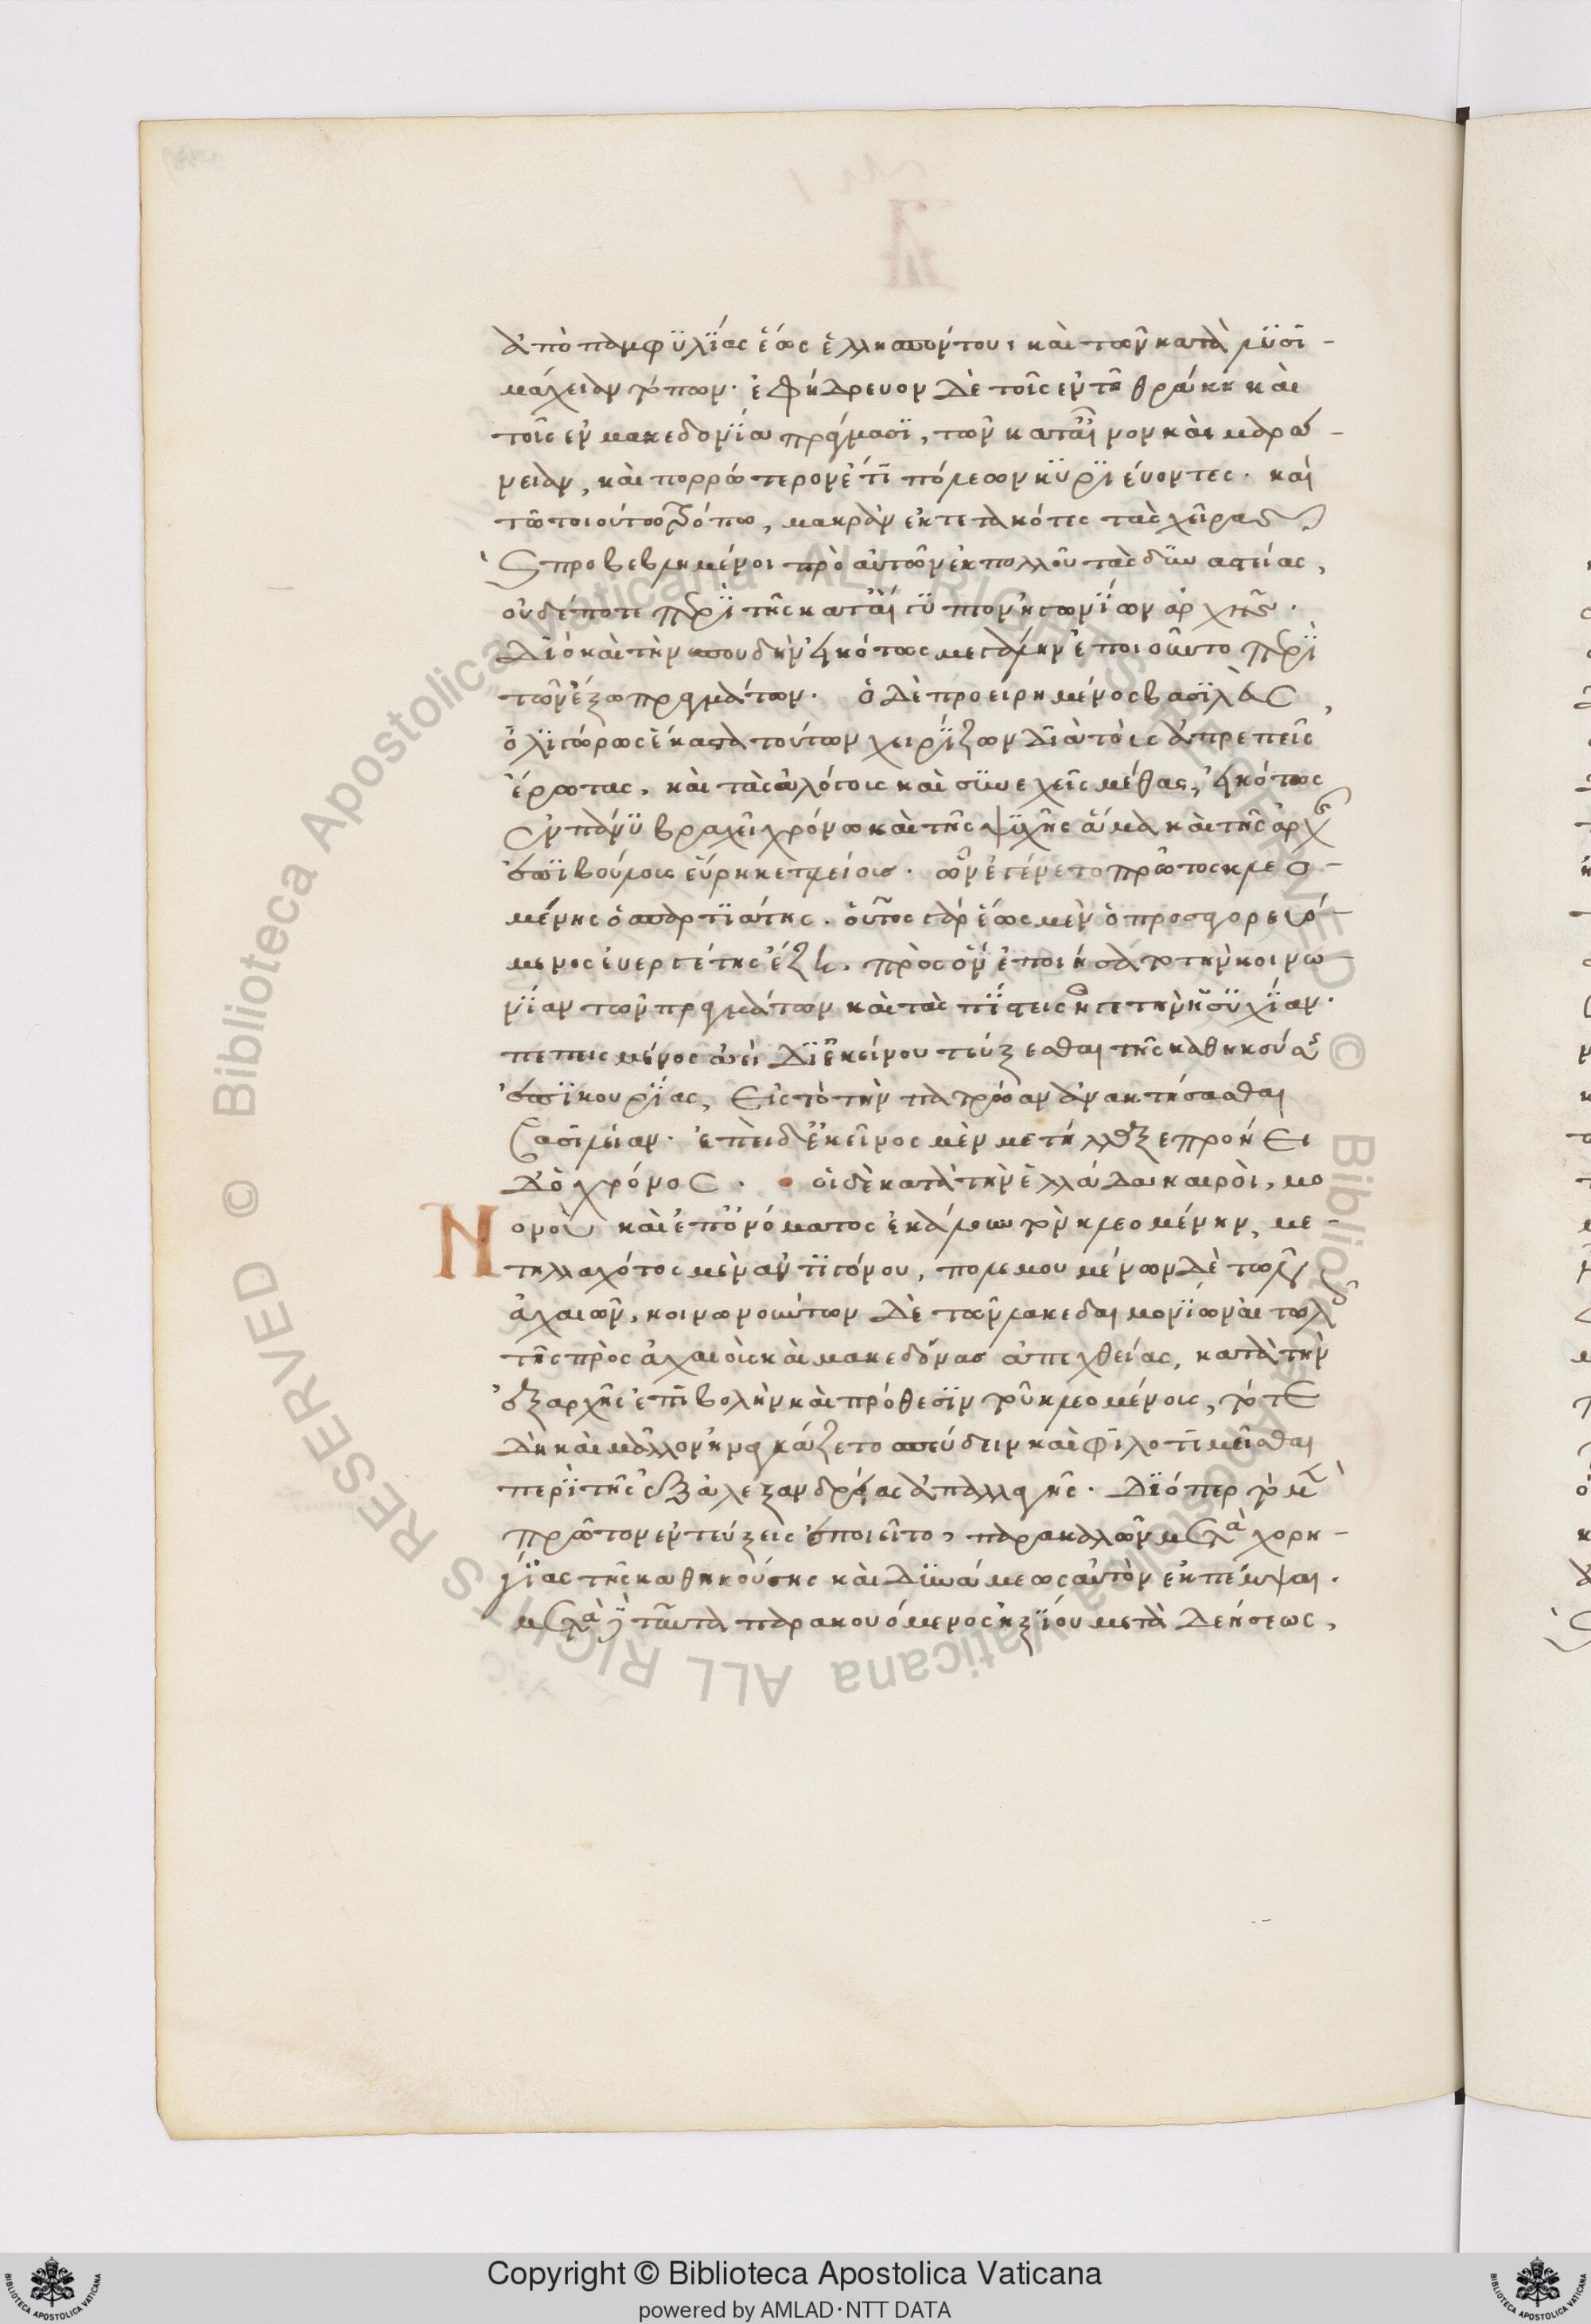 ἀπὸ παμφϋλΐας ἕως ἑλλησπόντου, καὶ τῶν κατὰ λϋσι-
μάχειαν τόπων· ἐφήδρευον δὲ τοῖς ἐν τῆ θράκη καὶ
τοῖς ἐν μακεδονΐα πράγμασϊ, τῶν κατ' αἶνον καὶ μαρώ-
νειαν, καὶ πορρώτερον ἔτι πόλεων κϋριεύοντες· καὶ
τῶ τοιούτω τρόπω, μακρὰν ἐκτετακότες τὰς χεῖρας
προβεβλημένοι πρὸ αὐτῶν ἐκ πολλοῦ τὰς δυναστείας,
οὐδέποτε περὶ τῆς κατ' αἴγϋπτον ἠγωνΐων ἀρχῆς·
διὸ καὶ τὴν σπουδὴν εἰκότως μεγάλην ἐποιοῦντο περὶ
τῶν ἔξω πραγμάτων· ὁ δὲ προειρημένος βασϊλεὺς,
ὀλϊγώρως ἕκαστα τούτων χειρΐζων διὰ τοὺς ἀπρεπεῖς
ἔρωτας, καὶ τὰς ἀλόγους καὶ συνεχεῖς μέθας, εἰκότως
ἐν πάνϋ βραχεῖ χρόνω καὶ τῆς ψυχῆς ἅμα καὶ τῆς ἀρχῆς
ἐπϊβούλους εὕρηκε πλείους· ὧν ἐγένετο πρῶτος κλεο-
μένης ὁ σπαρτϊάτης· οὗτος γὰρ ἕως μὲν ὁ προσαγορευό-
μενος εὐεργέτης ἔζη· πρὸς ὃν ἐποιήσατο τὴν κοινω-
νΐαν τῶν πραγμάτων καὶ τὰς πΐστεις ἦγε τὴν ἡσϋχΐαν·
πεπεισμένος ἀεὶ δι' ἐκείνου τεύξεσθαι τῆς καθηκούσης
ἐπϊκουρΐας, εἰς τὸ τὴν πατρώαν ἀνακτήσασθαι
βασιλείαν· ἐπεὶ δ' ἐκεῖνος μὲν μετήλλαξε προήει
δ' ὁ χρόνος· οἱ δὲ κατὰ τὴν ἑλλάδα καιροὶ, μο
Νονοὺ καὶ ἐπ' ὀνόματος ἐκάλουν τὸν κλεομένην, με-
τηλλαχότος μὲν ἀντϊγόνου, πολεμουμένων δὲ τῶν
ἀχαιῶν, κοινωνούντων δὲ τῶν λακεδαιμονΐων αἰτωλοῖς
τῆς πρὸς ἀχαιοὺς καὶ μακεδόνας ἀπεχθείας, κατὰ τὴν
ἐξ ἀρχῆς ἐπιβολὴν καὶ πρόθεσϊν τοῦ κλεομένους, τότε
δὴ καὶ μᾶλλον ἠναγκάζετο σπεύδειν καὶ φιλοτιμεῖσθαι
περῒ τῆς ἐξ ἀλεξανδρείας ἀπαλλαγῆς· διόπερ τὸ μὲν
πρῶτον ἐντεύξεις ἐποιεῖτο, παρακαλῶν μετὰ χορη-
γΐας τῆς καθηκούσης καὶ δυνάμεως αὐτὸν ἐκπέμψαι·
μετὰ δὲ ταῦτα παρακουόμενος ἠξΐου μετὰ δεήσεως,
Copyright © Biblioteca Apostolica Vaticana
powered by AMLAD·NTT DATA